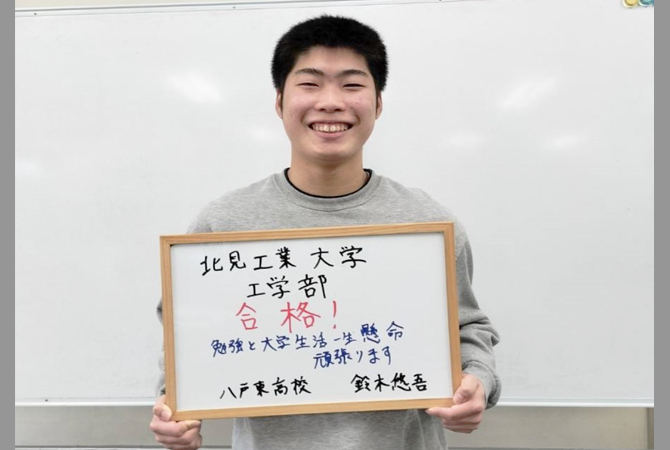 北見工業大学
工学部
合格!
勉強と大学生活一生懸命
頑張ります
八戸東高校 鈴木悠吾